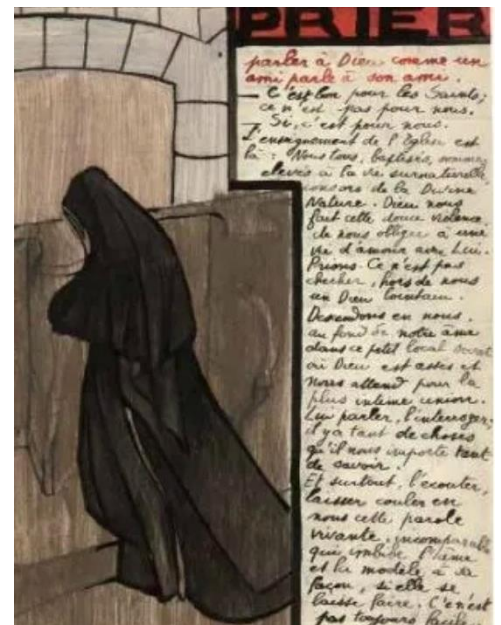 PRIER
parler à Dieu comme un
ami parle à son ami.
— C'est bon pour les Saints;
ce n'est pas pour nous.
— Si, c'est pour nous.
L'enseignement de l'Eglise est
là : Nous tous, baptisés, sommes
élevés à la vie surnaturelle,
consors de la Divine
Nature. Dieu nous
fait cette douce violence
de nous obliger à une
vie d'amour avec Lui.
Prions. Ce n'est pas
chercher, hors de nous
un Dieu lointain.
Descendons en nous.
au fond de notre âme
dans ce petit local secret
où Dieu est assis et
nous attend pour la
plus intime union.
Lui parler, l'interroger.
il y a tant de choses
qu'il nous importe tant
de savoir.
Et surtout, l'écouter,
laisser couler en
nous cette parole
vivante, incomparable
qui imbibe l'âme
et la modèle à sa
façon, si elle se
laisse faire. C'en'est
pas toujours facile.